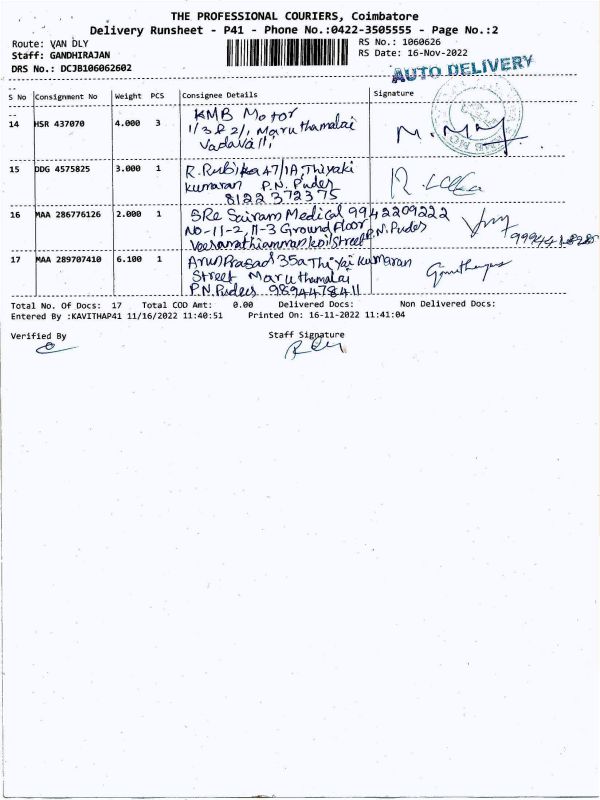 THE PROFESSIONAL COURIERS, Coimbatore
Delivery Runsheet - P41 - Phone No.:0422-3505555 - Page No.:2
Route: VAN DLY
RS No.: 1060626
Staff: GANDHIRAJAN
RS Date: 16-Nov-2022
DRS No.: DCJB106062602
AUTO DELIVERY
S No Consignment No Weight PCS Consignee Details Signature
14 HSR 437070 4.000 3 KMB Motor
1/3 & 2/, Maruthamalai
Vadavalli
15 DDG 4575825 3.000 1 R. Rubika 47/1A, Thiyaki
Kumaran P.N. Puder
8122372375
16 MAA 286776126 2.000 1 SRe Sairam Medical 9942209222
NO-11-2, 11-3 Ground Floor
Veeramathiamman koil Street P.N. Pudes
17 MAA 289707410 6.100 1 Arun Prasad 35a Thiyai Kumaran
Street Maruthamalai
P.N. Pudes 9894478411
Total No. Of Docs: 17 Total COD Amt: 0.00 Delivered Docs: Non Delivered Docs:
Entered By :KAVITHAP41 11/16/2022 11:40:51 Printed On: 16-11-2022 11:41:04
Verified By Staff Signature